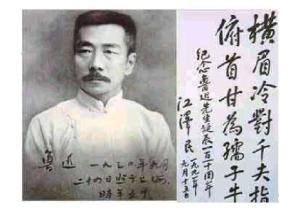 橫眉冷對千夫指
俯首甘為孺子牛
纪念魯迅先生诞辰一百一十周年
江澤民
一九九一年
九月十五日
魯迅 一九三〇年九月
二十四日照于上海
時年五十